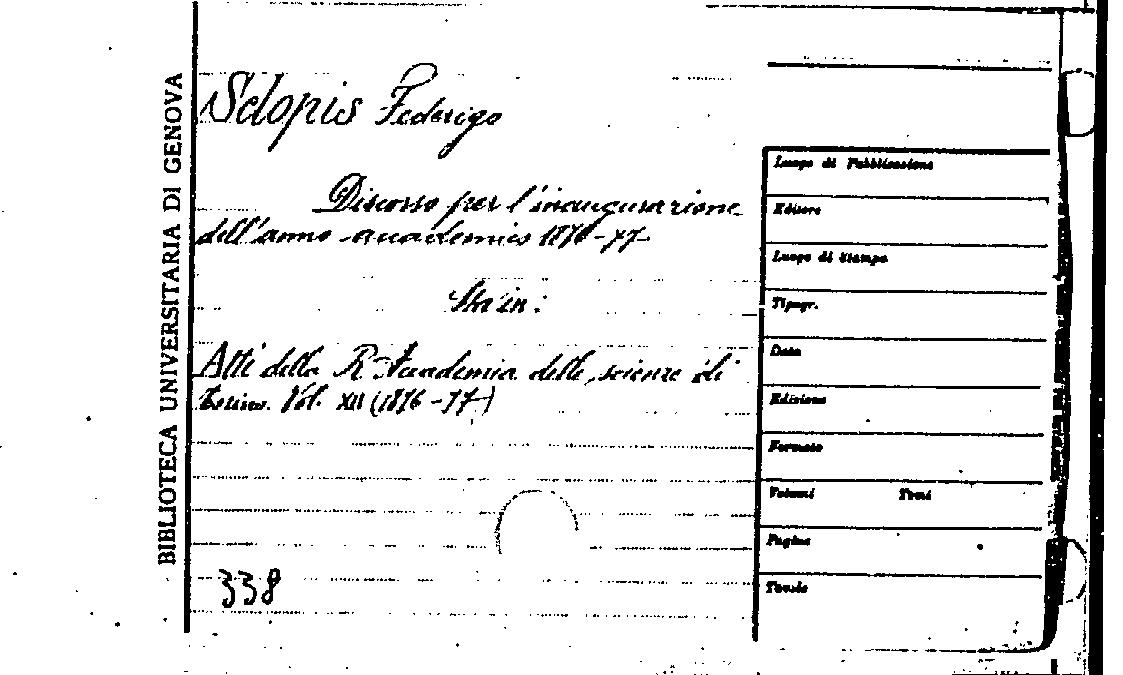 BIBLIOTECA UNIVERSITARIA DI GENOVA
Sclopis Federigo
Discorso per l'inaugurazione
dell'anno accademico 1876-77
Sta in:
Atti della R. Accademia delle scienze di
Torino. Vol. XII (1876-77)
338
Luogo di Pubblicazione
Editore
Luogo di Stampa
Tipogr.
Data
Edizione
Formato
Volumi Tomi
Pagine
Tavole